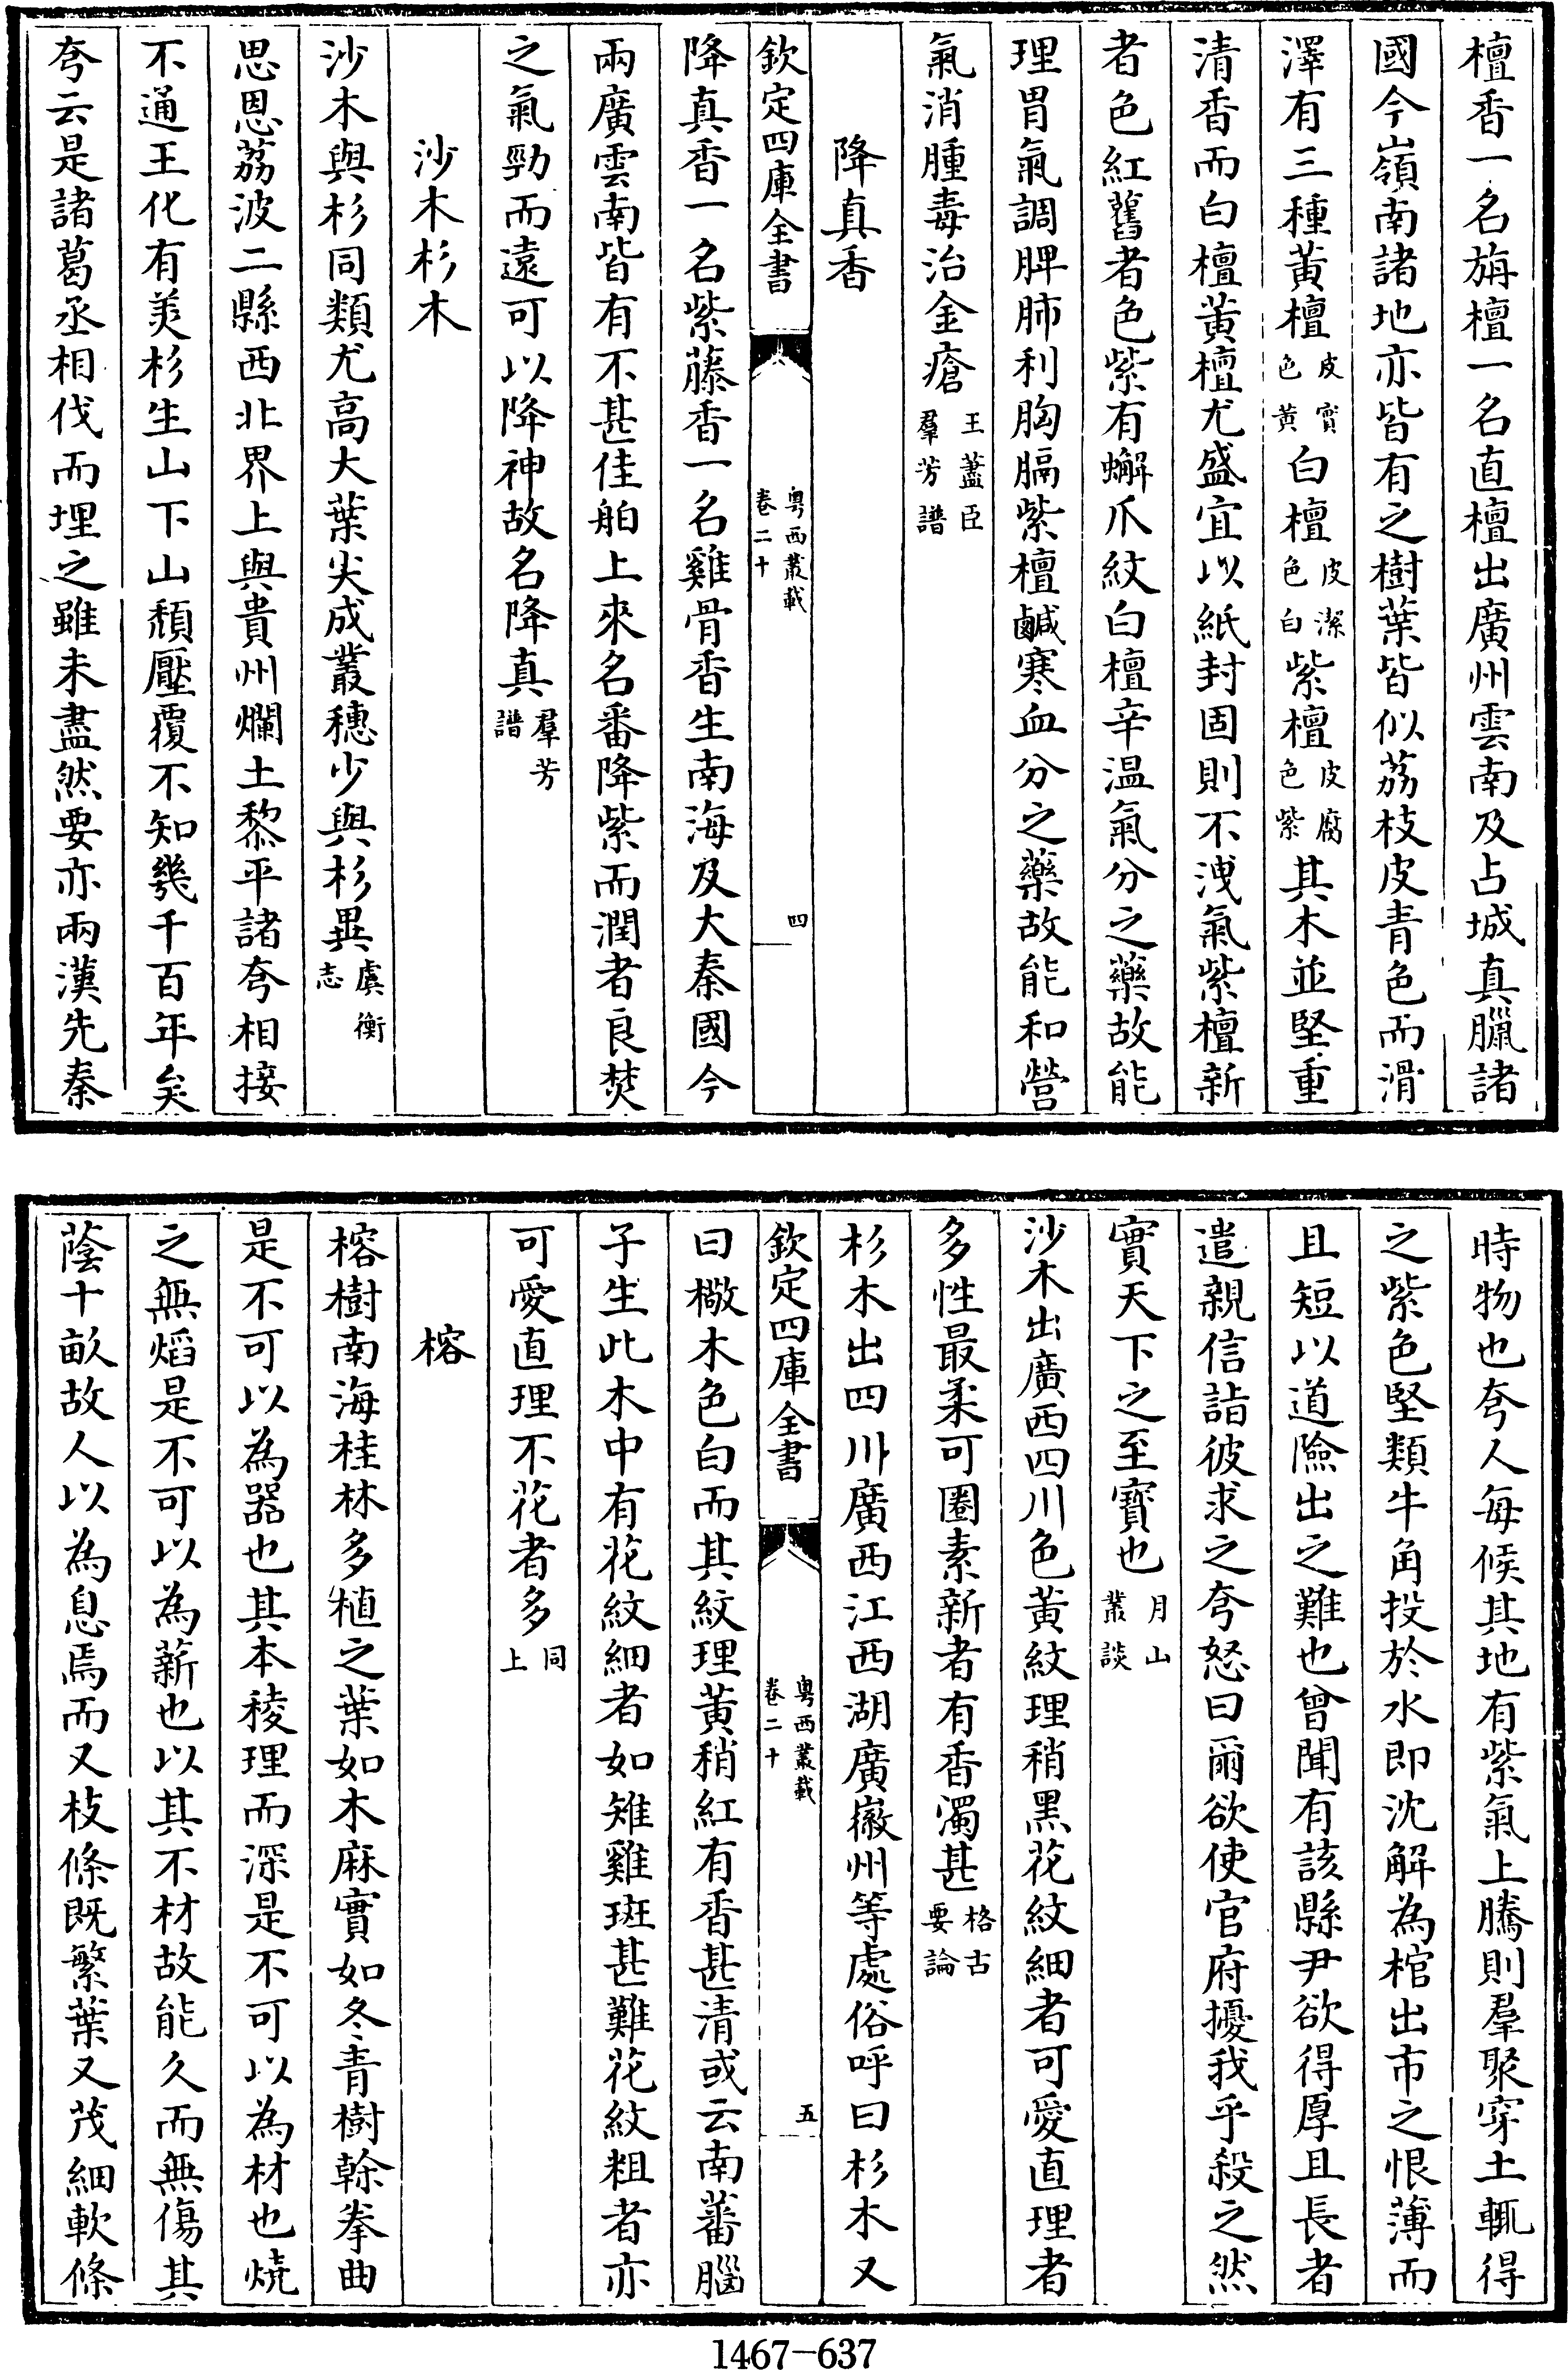 檀香一名旃檀一名直檀出廣州雲南及占城真臘諸
國今嶺南諸地亦皆有之樹葉皆似荔枝皮青色而滑
澤有三種黄檀皮實色黄白檀皮潔色白紫檀皮腐色紫其木並堅重
清香而白檀黄檀尤盛宜以紙封固則不洩氣紫檀新
者色紅舊者色紫有蠏爪紋白檀辛温氣分之藥故能
理胃氣調脾肺利胸膈紫檀鹹寒血分之藥故能和營
氣消腫毒治金瘡王藎臣羣芳譜
降真香
欽定四庫全書
粤西叢載
卷二十
四
降真香一名紫藤香一名雞骨香生南海及大秦國今
兩廣雲南皆有不甚佳舶上來名番降紫而潤者良焚
之氣勁而遠可以降神故名降真羣芳譜
沙木杉木
沙木與杉同類尤高大葉尖成叢穗少與杉異虞衡志
思恩荔波二縣西北界上與貴州爛土黎平諸夸相接
不通王化有美杉生山下山頹壓覆不知幾千百年矣
夸云是諸葛丞相伐而埋之雖未盡然要亦兩漢先秦
時物也夸人每候其地有紫氣上騰則羣聚穿土輒得
之紫色堅類牛角投於水即沈解為棺出市之恨薄而
且短以道險出之難也曾聞有該縣尹欲得厚且長者
遣親信詣彼求之夸怒曰爾欲使官府擾我乎殺之然
實天下之至寳也月山叢談
沙木出廣西四川色黄紋理稍黑花紋細者可愛直理者
多性最柔可圈素新者有香濁甚格古要論
杉木出四川廣西江西湖廣徽州等處俗呼曰杉木又
欽定四庫全書
粤西叢載
卷二十
五
曰檄木色白而其紋理黄稍紅有香甚清或云南蕃腦
子生此木中有花紋細者如雉雞斑甚難花紋粗者亦
可愛直理不花者多同上
榕
榕樹南海桂林多植之葉如木麻實如冬青樹幹拳曲
是不可以為器也其本稜理而深是不可以為材也燒
之無熖是不可以為薪也以其不材故能久而無傷其
蔭十畝故人以為息焉而又枝條既繁葉又茂細軟條
1467-637